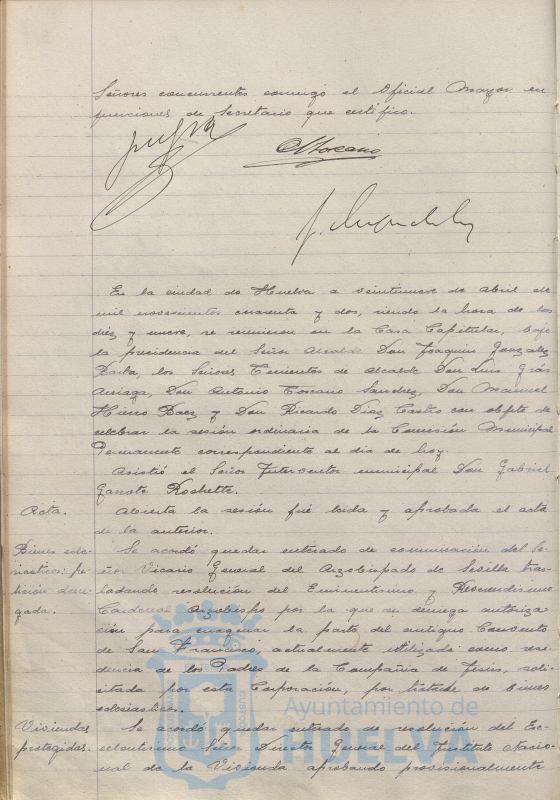 Señores concurrentes conmigo el Oficial Mayor en
funciones de Secretario que certifico.
En la ciudad de Huelva a veintinueve de Abril de
mil novecientos cuarenta y dos, siendo la hora de las
diez y nueve, se reunieron en la Casa Capitular, bajo
la presidencia del Señor Alcalde Don Joaquin Gonzalez
Barba, los Señores Tenientes de Alcalde Don Luis
Don Antonio Toscano Sanchez, Don Manuel
Hierro Baez y Don Ricardo Diaz Castro con objeto de
celebrar la sesión ordinaria de la Comisión Municipal
Permanente correspondiente al dia de hoy.
Asistió el Señor Interventor municipal Don Gabriel
Ganote
Acta. Abierta la sesión fué leida y aprobada el acta
de la anterior.
Bienes ecle- Se acordó quedar enterado de comunicación del Se-
siasticos: pe- ñor Vicario General del Arzobispado de Sevilla tras-
tición dene- ladando resolución del Eminentisimo y Reverendisimo
gada. Cardenal Arzobispo por la que se deniega autoriza-
ción para enagenar la parte del antiguo Convento
de San Francisco, actualmente utilizada como resi-
dencia de los Padres de la Compañia de Jesús, soli-
citada por esta Corporación, por tratarse de bienes
eclesiasticos.
Viviendas Se acordó quedar enterado de resolución del Ex-
protegidas. celentisimo Señor Director General del Instituto Nacio-
nal de la Vivienda aprobando provisionalmente
Ayuntamiento de
HUELVA